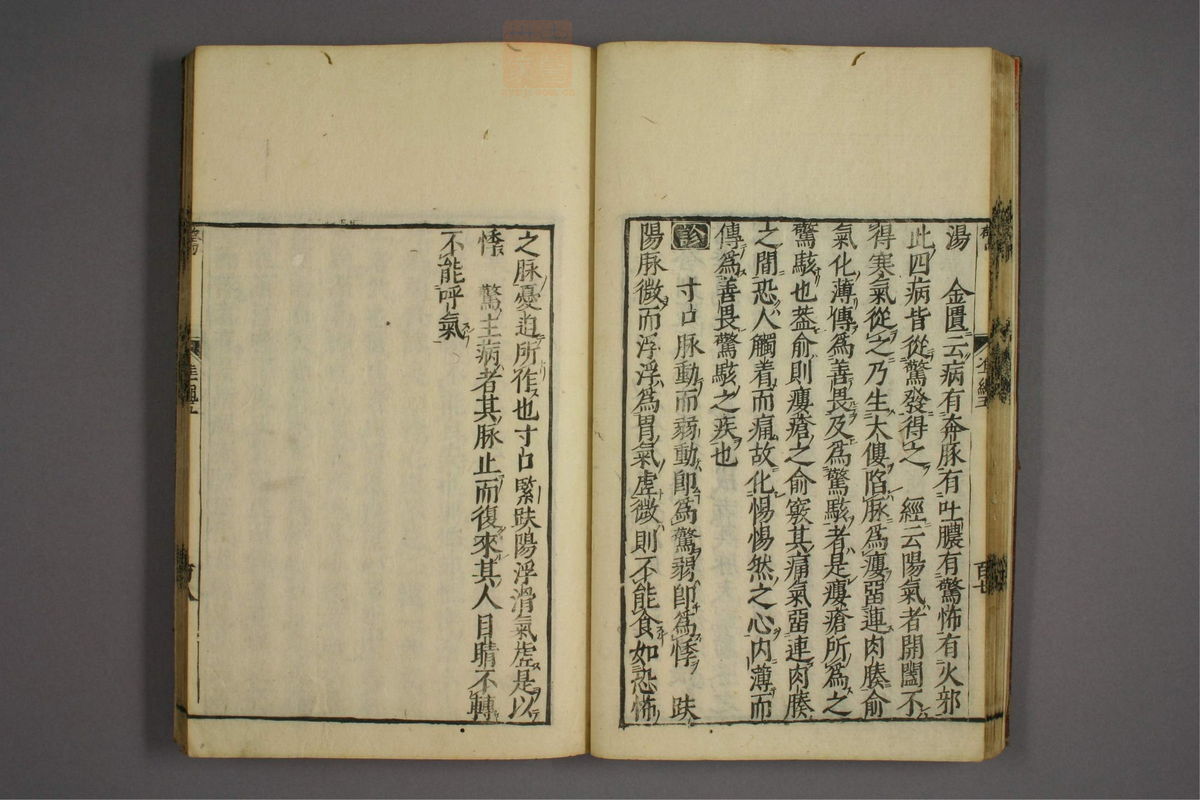 湯　金匱云病有奔豚有吐膿有驚怖有火邪
此四病皆從驚發得之　經云陽氣者開闔不
得寒氣從之乃生大僂陷脉為瘻畱連肉腠俞
氣化薄傳為善畏及為驚駭者是瘻瘡所為之
驚駭也葢俞則瘻瘡之俞竅其痛氣畱連肉腠
之間恐人觸着而痛故化惕惕然之心內薄而
傳為善畏驚駭之疾也
診　寸口脉動而弱動卽為驚弱卽為悸　趺
陽脉微而浮浮為胃氣虛微則不能食如恐怖
之脉憂迫所作也寸口緊趺陽浮滑氣虛是以
悸　驚主病者其脉止而復來其人目睛不轉
不能呼氣
百七
百八